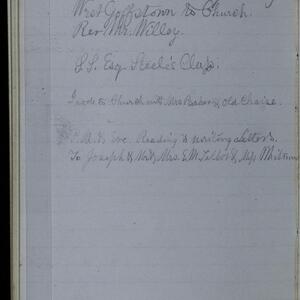 West Goffstown to Church.
Rev. Mr. Willey.
S.S. Esq Steele's Class.
I rode to Church with Mrs Barker's old Chaise.
P.M. & Eve. Reading & writing letters.
To Joseph & Mrs. E.M. Talbot & Miss